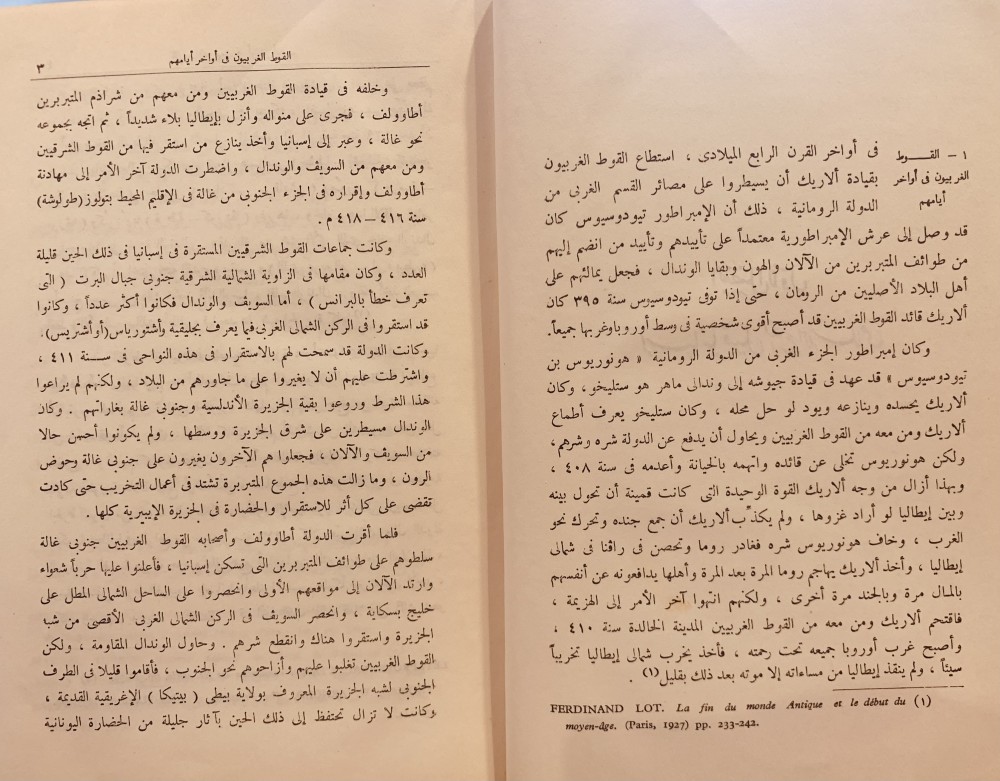 ١ – القـــوط
الغربيون فى أواخر
أيامهم
فى أواخر القرن الرابع الميلادى ، استطاع القوط الغربيون
بقيادة ألاريك أن يسيطروا على مصائر القسم الغربى من
الدولة الرومانية ، ذلك أن الإمبراطور تيودوسيوس كان
قد وصل إلى عرش الإمبراطورية معتمداً على تأييدهم وتأييد من انضم إليهم
من طوائف المتبربرين من الآلان والهون وبقايا الوندال ، فجعل يمالئهم على
أهل البلاد الأصليين من الرومان ، حتى إذا توفى تيودوسيوس سنة ٣٩٥ كان
ألاريك قائد القوط الغربيين قد أصبح أقوى شخصية فى وسط أوروبا وغربها جميعاً.
وكان إمبراطور الجزء الغربى من الدولة الرومانية « هونوريوس بن
تيودوسيوس » قد عهد فى قيادة جيوشه إلى وندالى ماهر هو ستليخو ، وكان
ألاريك يحسده وينازعه ويود لو حل محله ، وكان ستليخو يعرف أطماع
ألاريك ومن معه من القوط الغربيين ويحاول أن يدفع عن الدولة شره وشرهم،
ولكن هونوريوس تخلى عن قائده واتهمه بالخيانة وأعدمه فى سنة ٤٠٨
وبهذا أزال من وجه ألاريك القوة الوحيدة التى كانت قمينة أن تحول بينه
وبين إيطاليا لو أراد غزوها ، ولم يكذّب ألاريك أن جمع جنده وتحرك نحو
الغرب ، وخاف هونوريوس شره فغادر روما وتحصن فى راڤنا فى شمالى
إيطاليا ، وأخذ ألاريك يهاجم روما المرة بعد المرة وأهلها يدافعونه عن أنفسهم
بالمال مرة وبالجند مرة أخرى ، ولكنهم انتهوا آخر الأمر إلى الهزيمة ،
فاقتحم ألاريك ومن معه من القوط الغربيين المدينة الخالدة سنة ٤١٠ ،
وأصبح غرب أوروبا جميعه تحت رحمته ، فأخذ يخرب شمالى إيطاليا تخريباً
سيئاً ، ولم ينقذ إيطاليا من مساءاته إلا موته بعد ذلك بقليل(١) .
FERDINAND LOT. La fin du monde Antique et le début du (١)
moyen-âge. (Paris, 1927) pp. 233-242.
القوط الغربيون فى أواخر أيامهم
٣
وخلفه فى قيادة القوط الغربيين ومن معهم من شراذم المتبربرين
أطاوولف ، فجرى على منواله وأنزل بإيطاليا بلاء شديداً ، ثم اتجه بجموعه
نحو غالة ، وعبر إلى إسبانيا وأخذ ينازع من استقر فيها من القوط الشرقيين
ومن معهم من السويف والوندال ، واضطرت الدولة آخر الأمر إلى مهادنة
أطاوولف وإقراره فى الجزء الجنوبى من غالة فى الإقليم المحيط بتولوز (طولوشة)
سنة ٤١٦ – ٤١٨ م .
وكانت جماعات القوط الشرقيين المستقرة فى إسبانيا فى ذلك الحين قليلة
العدد ، وكان مقامها فى الزاوية الشمالية الشرقية جنوبى جبال البرت ( التى
تعرف خطأ بالبرانس ) ، أما السويف والوندال فكانوا أكثر عدداً ، وكانوا
قد استقروا فى الركن الشمالى الغربى فيما يعرف بجليقية وأشتورياس(أو أشتريس).
وكانت الدولة قد سمحت لهم بالاستقرار فى هذه النواحى فى ســـنة ٤١١ ،
واشترطت عليهم أن لا يغيروا على ما جاورهم من البلاد ، ولكنهم لم يراعوا
هذا الشرط وروعوا بقية الجزيرة الأندلسية وجنوبى غالة بغاراتهم . وكان
الوندال مسيطرين على شرق الجزيرة ووسطها ، ولم يكونوا أحسن حالا
من السويف والآلان ، فجعلوا هم الآخرون يغيرون على جنوبى غالة وحوض
الرون ، وما زالت هذه الجموع المتبربرة تشتد فى أعمال التخريب حتى كادت
تقضى على كل أثر للاستقرار والحضارة فى الجزيرة الإيبيرية كلها .
فلما أقرت الدولة أطاوولف وأصحابه القوط الغربيين جنوبى غالة
سلطوهم على طوائف المتبربرين التى تسكن إسبانيا ، فأعلنوا عليها حرباً شعواء
وارتد الآلان إلى مواقعهم الأولى وانحصروا على الساحل الشمالى المطل على
خليج بسكاية ، وانحصر السويف فى الركن الشمالى الغربى الأقصى من شبا
الجزيرة واستقروا هناك وانقطع شرهم . وحاول الوندال المقاومة ، ولكن
القوط الغربيين تغلبوا عليهم وأزاحوهم نحو الجنوب ، فأقاموا قليلا فى الطرف
الجنوبى لشبه الجزيرة المعروف بولاية بيطى ( بيتيكا ) الإغريقية القديمة ،
وكانت لا تزال تحتفظ إلى ذلك الحين بآثار جليلة من الحضارة اليونانية